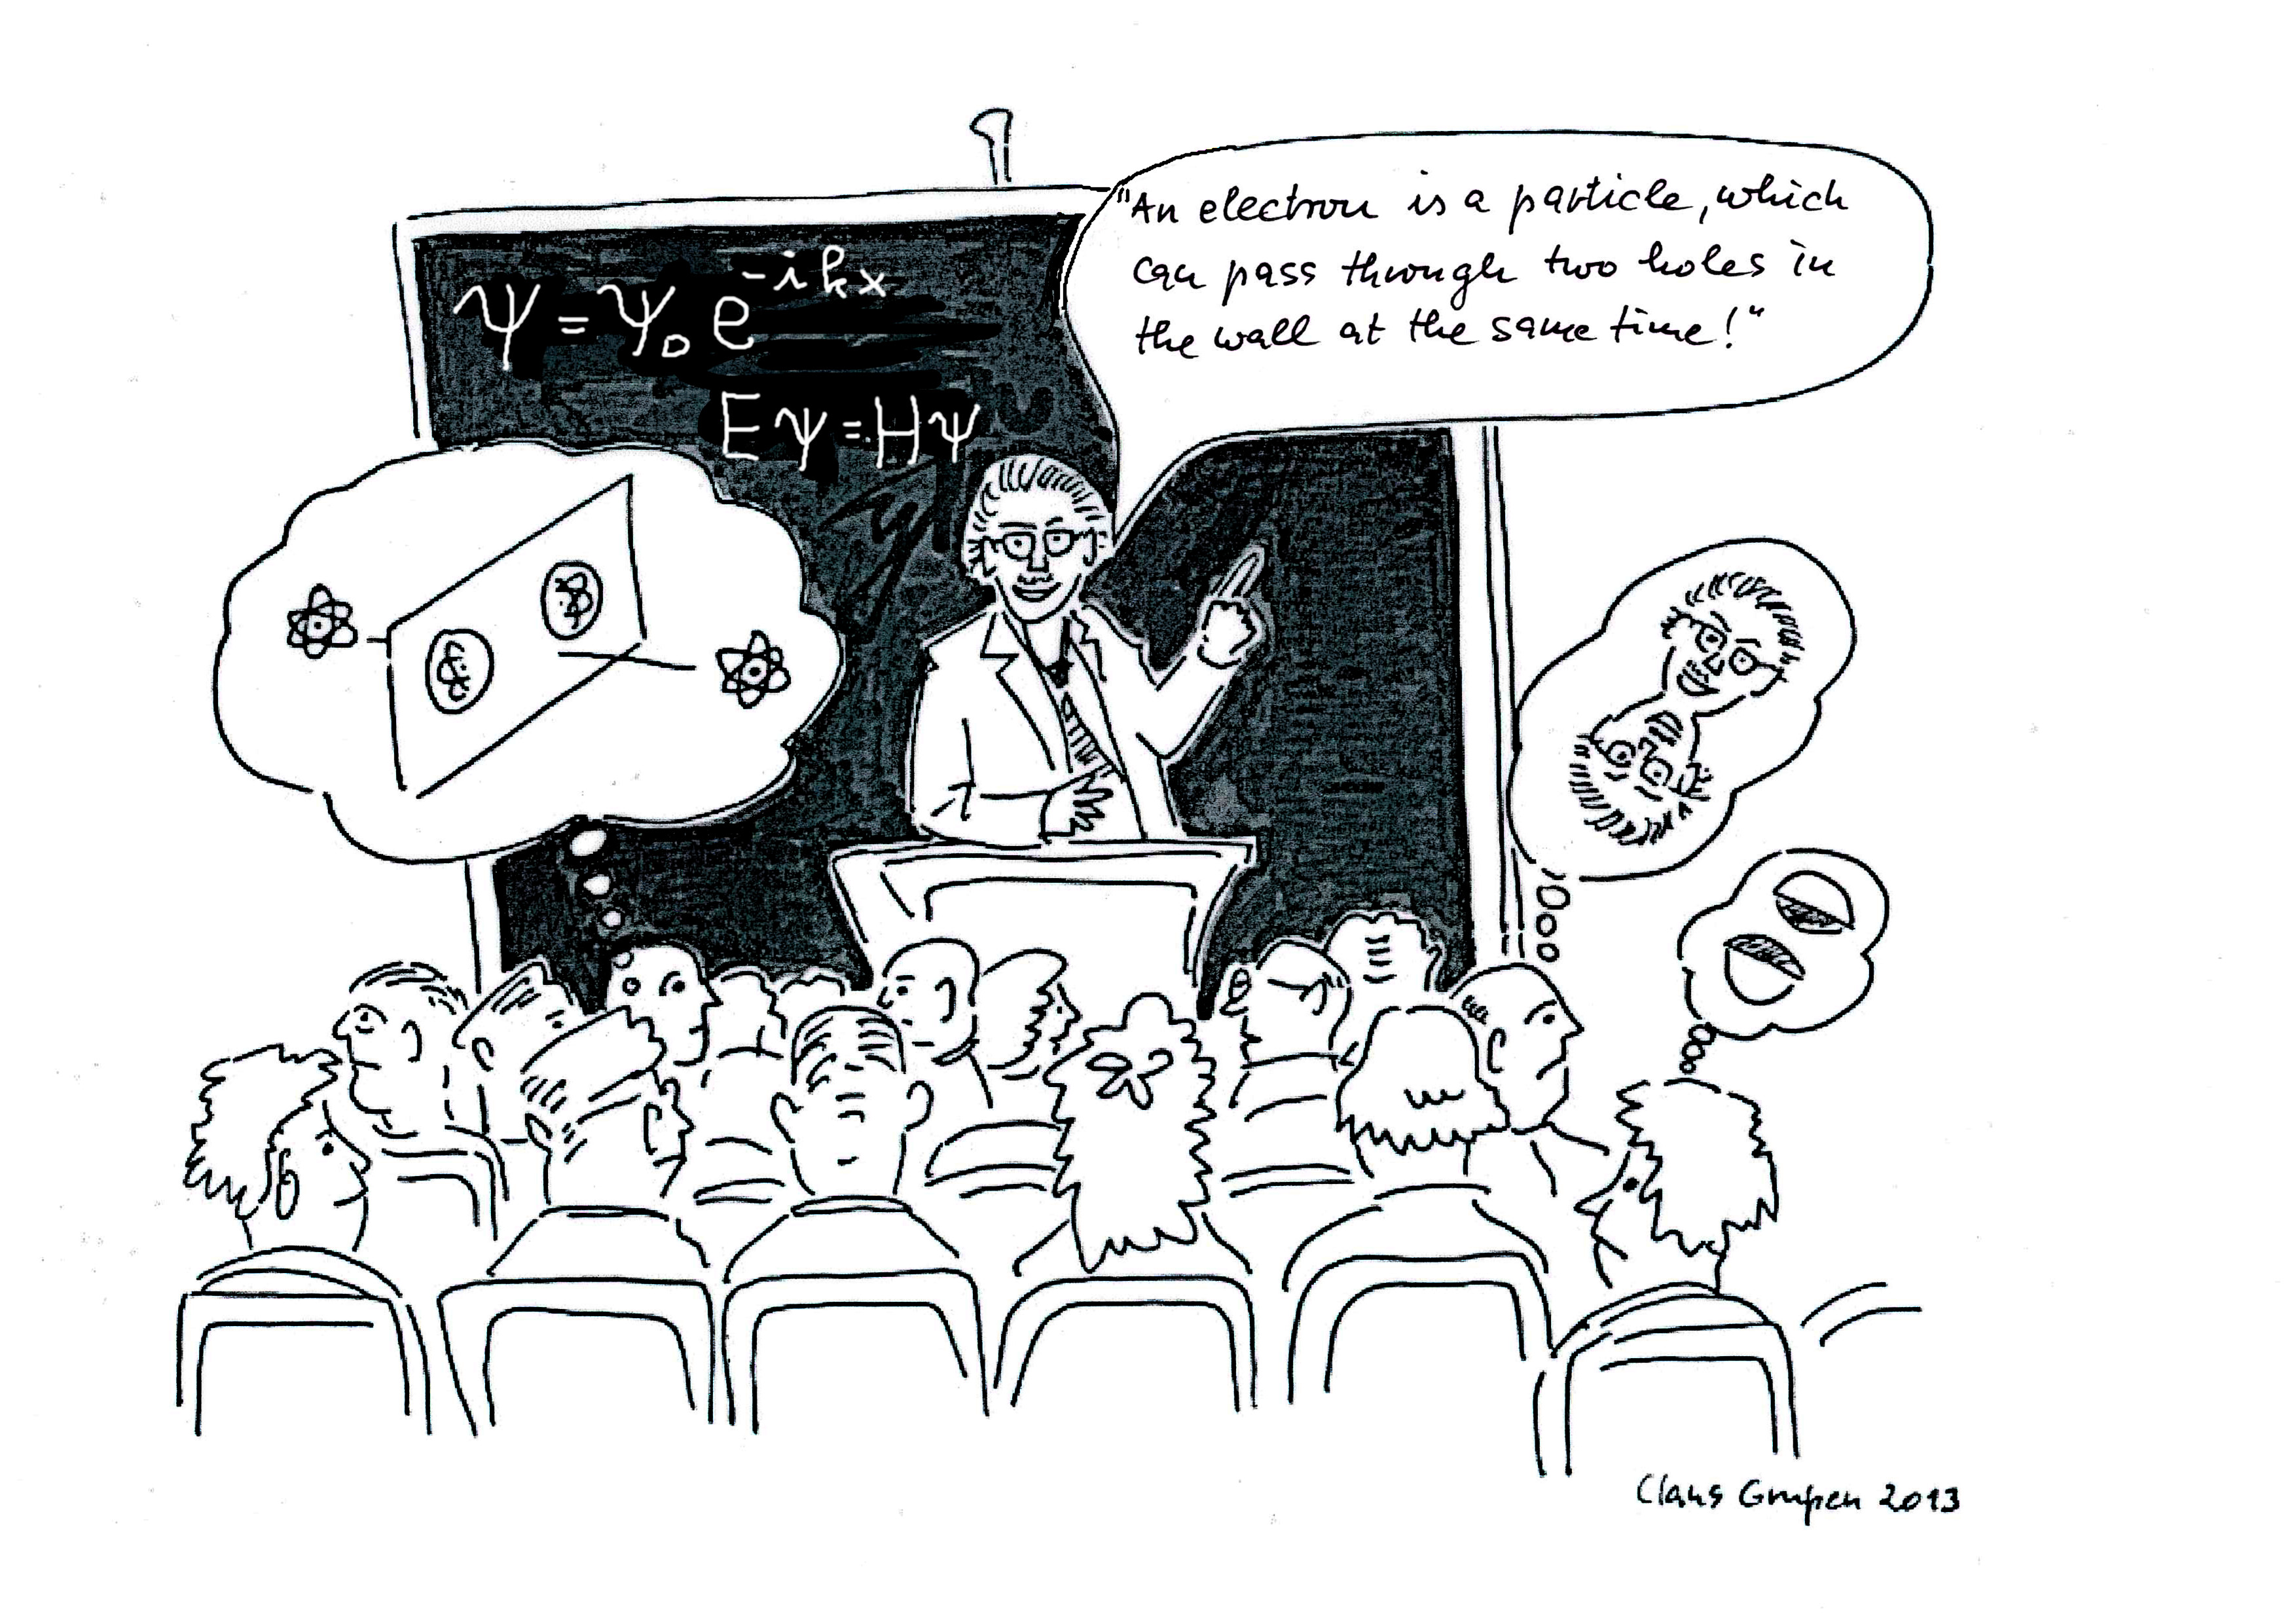 ψ = ψ₀ e^{-ikx}
Eψ = Hψ
"An electron is a particle, which
can pass through two holes in
the wall at the same time!"
Claus Grupen 2013